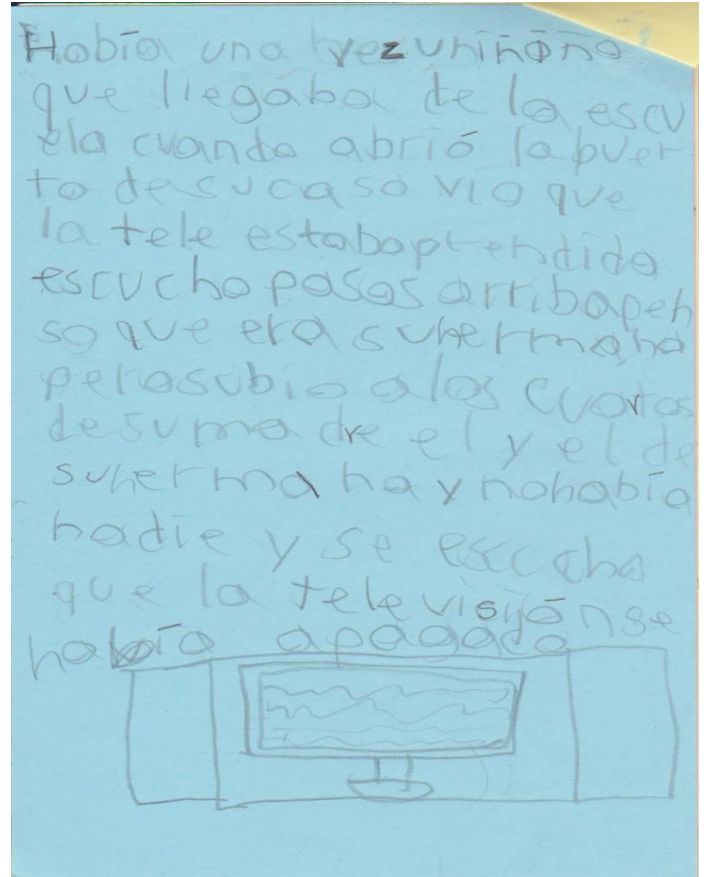 Había una vez uniñoño
que llegaba de la escu
ela cuando abrió lapuer
ta desucasa vio que
la tele estabaprendida
escucho pasos arribapen
so que era suhermana
perosubio a los cuartos
desumadre el y el de
suhermana y nohabía
nadie y se escucho
que la televisiónse
había apagado